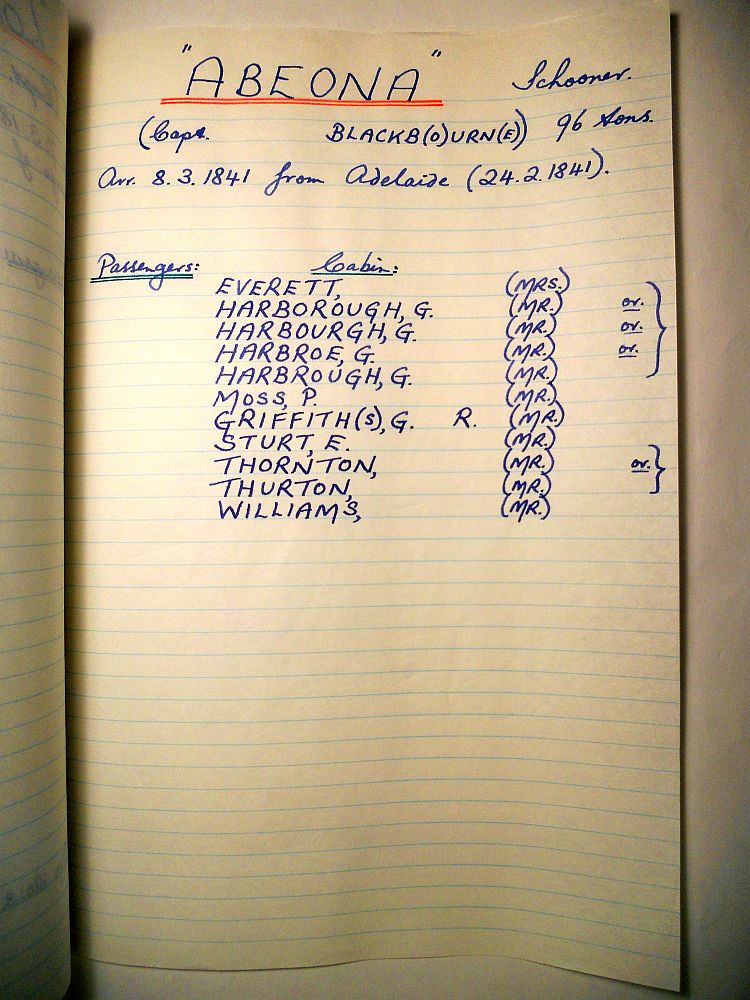 "ABEONA" Schooner.
(Capt. BLACKB(O)URN(E)) 96 tons.
Arr. 8.3.1841 from Adelaide (24.2.1841).
Passengers: Cabin:
EVERETT, (MRS.)
HARBOROUGH, G. (MR.) or.
HARBOURGH, G. (MR.) or.
HARBROE, G. (MR.) or.
HARBROUGH, G. (MR.)
MOSS, P. (MR.)
GRIFFITH(S), G. R. (MR.)
STURT, E. (MR.)
THORNTON, (MR.) or.
THURTON, (MR.)
WILLIAMS, (MR.)